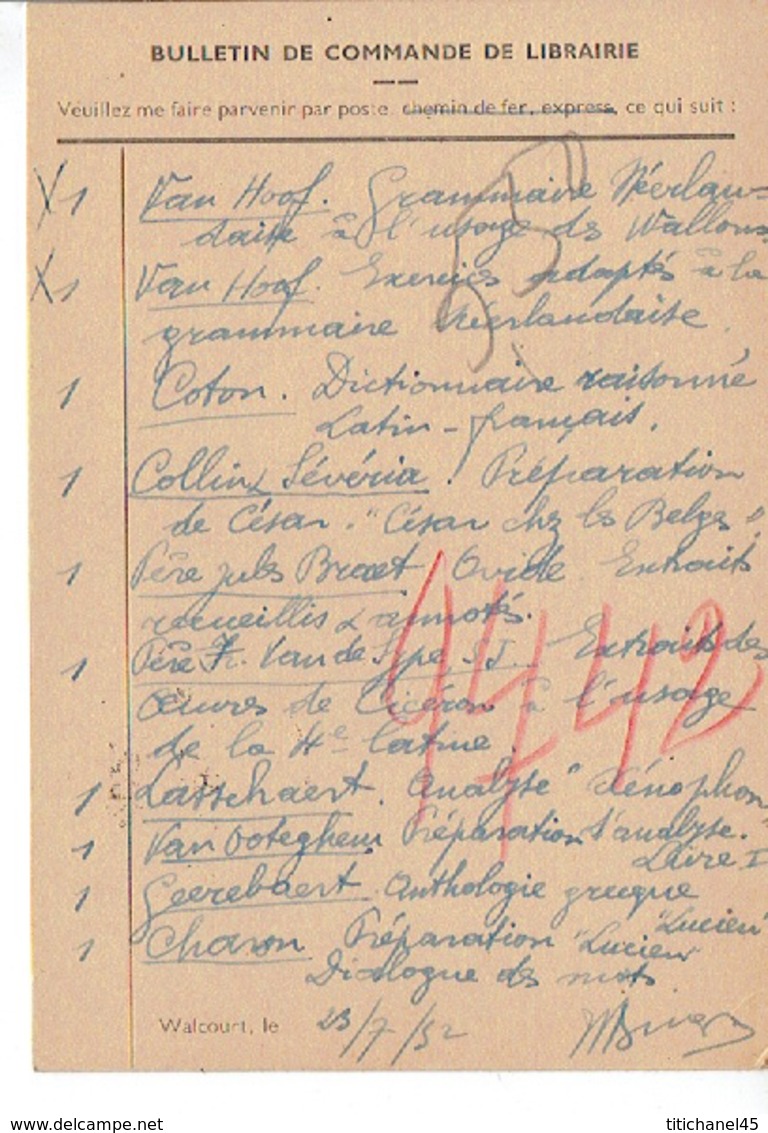 BULLETIN DE COMMANDE DE LIBRAIRIE
Veuillez me faire parvenir par poste, chemin de fer, express, ce qui suit :
X 1 Van Hoof. Grammaire Néerlan-
daise à l'usage des Wallons
X 1 Van Hoof. Exercices adaptés à la
grammaire Néerlandaise.
1 Coton. Dictionnaire raisonné
Latin-français.
1 Collin & Sévérin. Préparation
de César. "César chez les Belges".
1 Père Jules Braet. Ovide. Extraits
recueillis & annotés.
1 Père Fr. Van de Sype S.J. Extraits des
Œuvres de Cicéron à l'usage
de la 4e latine.
4742
1 Lasschaert. Analyse "Xénophon"
1 Van Ooteghem Préparation & analyse.
Livre I
1 Geerebaert. Anthologie grecque
1 Charon Préparation "Lucien" "Lucien"
Dialogue des morts.
Walcourt, le 23/7/52
delcampe.net
titichanel45